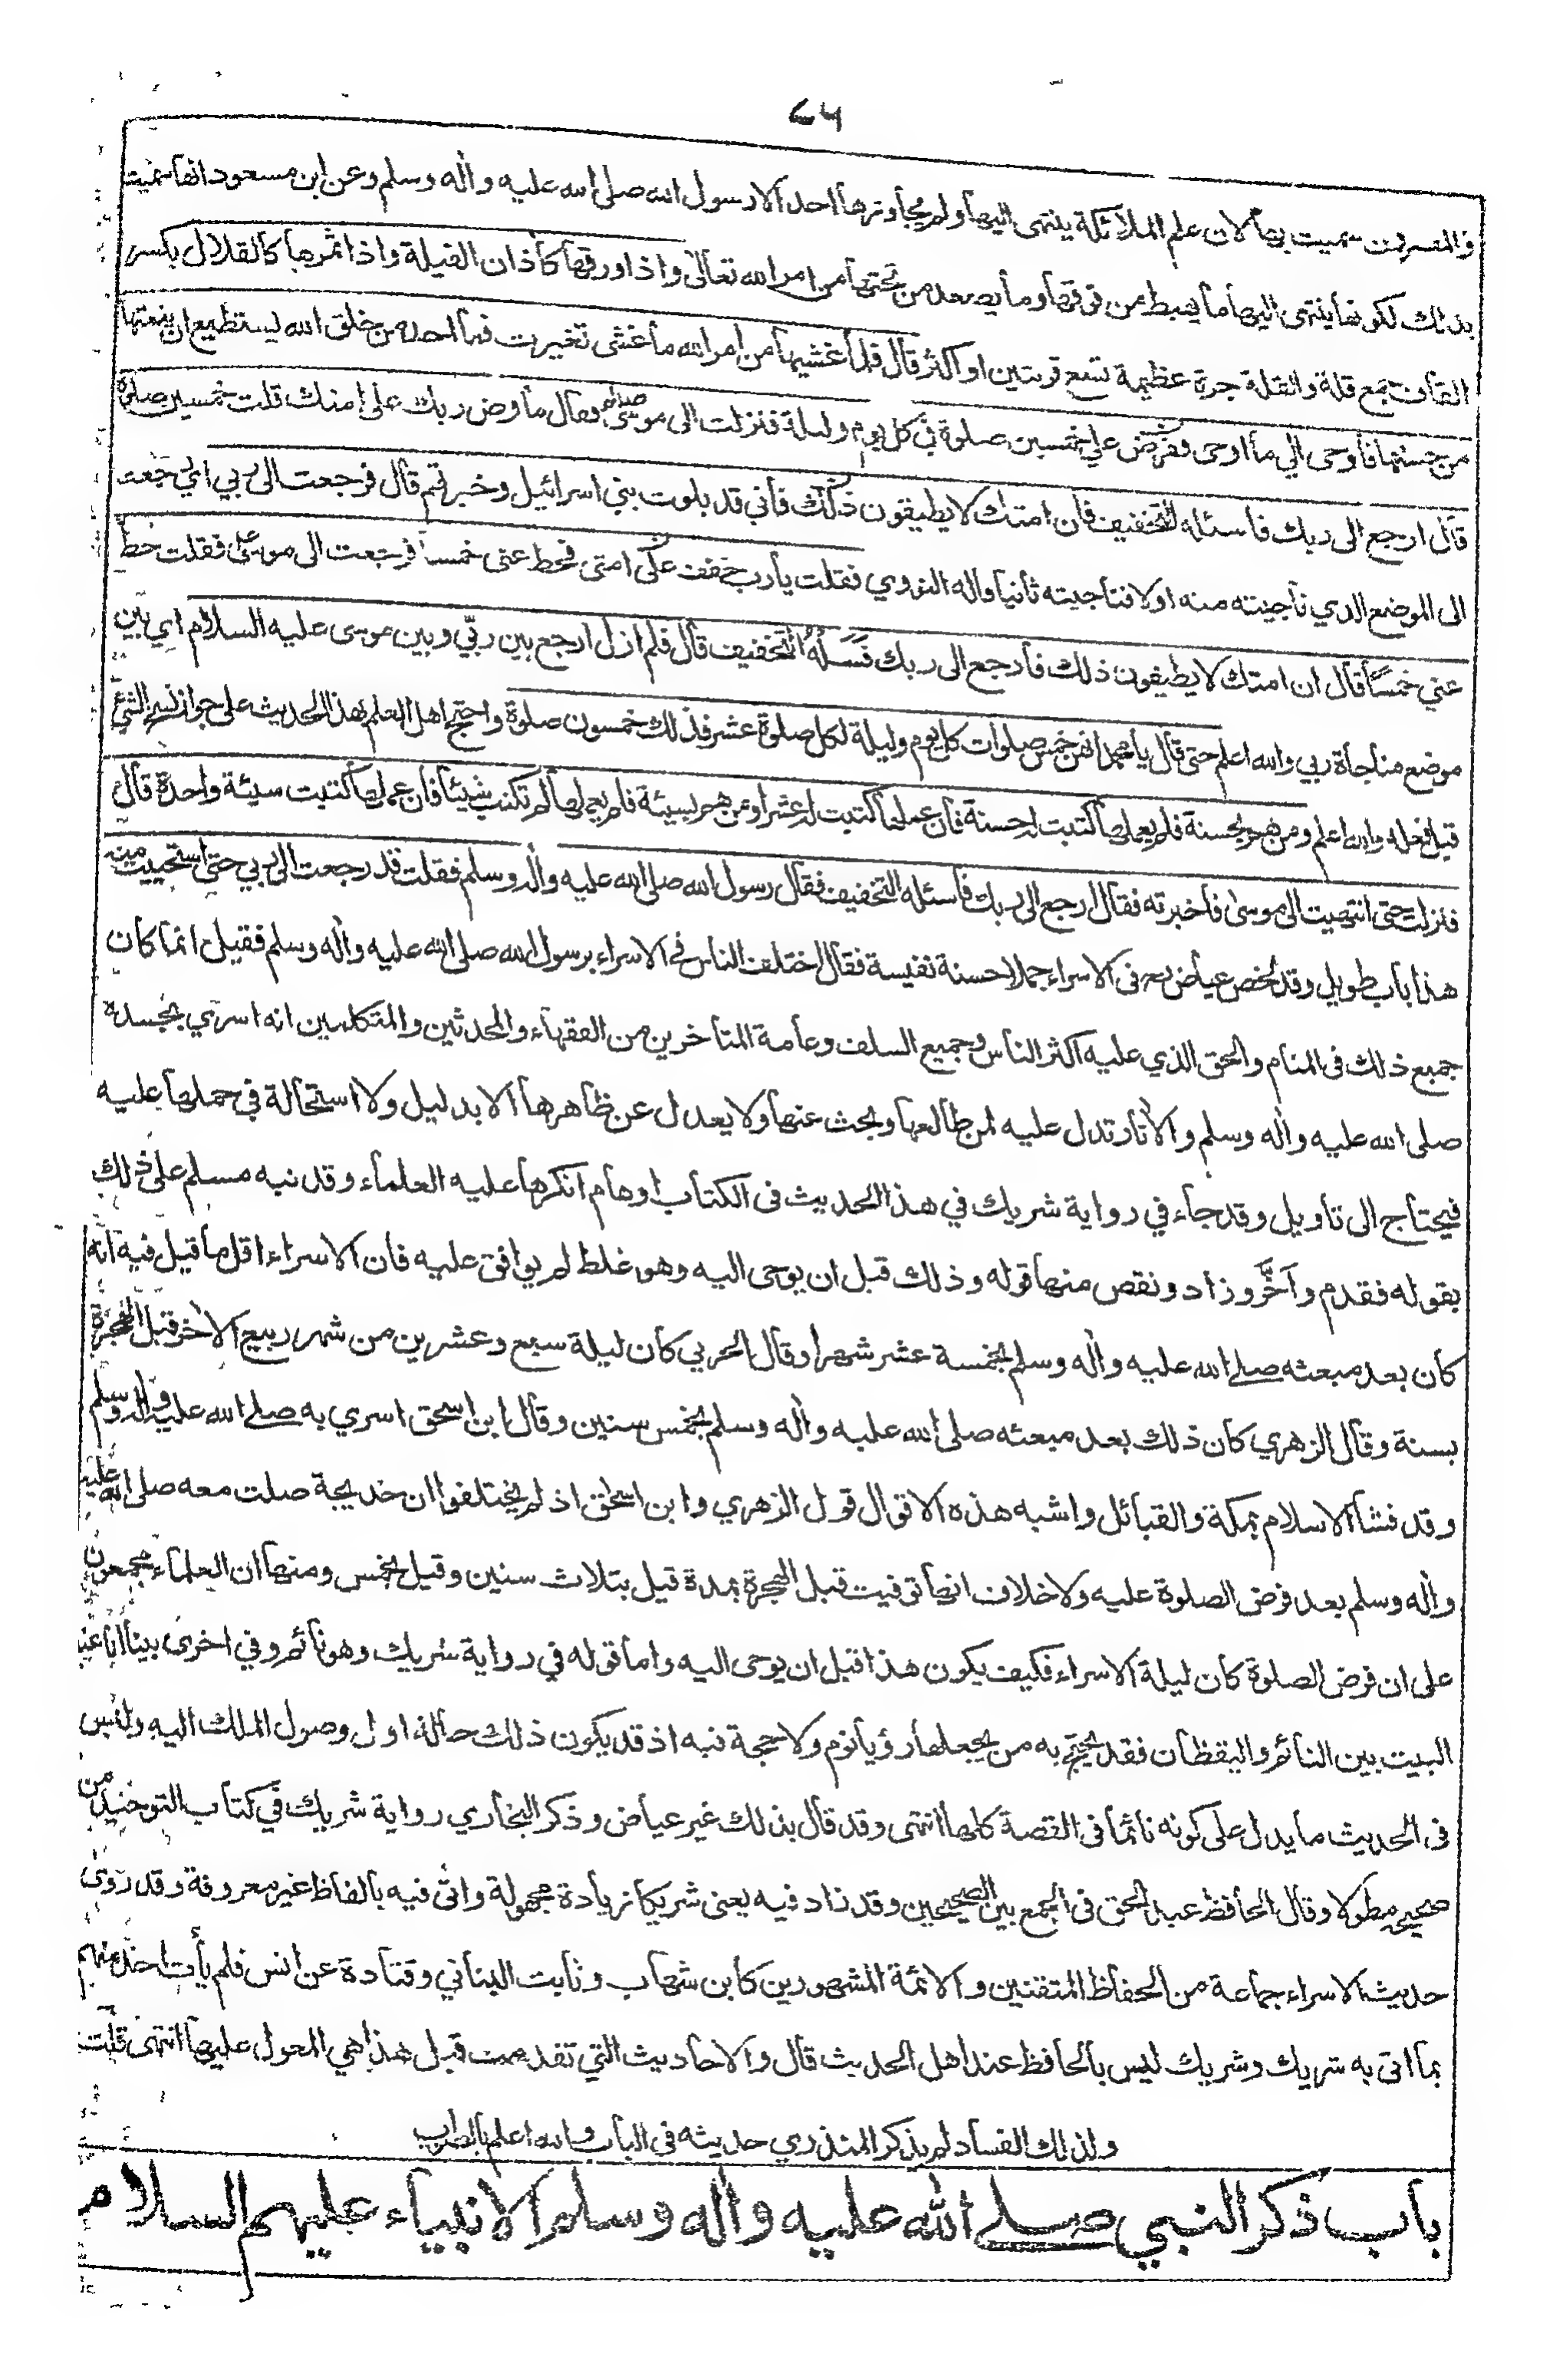 ٧٦
والمفسرين سميت بها لان علم الملائكة ينتهى اليها ولم يجاوزها احد الا رسول الله صلى الله عليه واله وسلم وعن ابن مسعود انها سميت
بذلك لكونها ينتهى اليها ما يهبط من فوقها وما يصعد من تحتها من امر الله تعالى واذا ورقها كأذان الفيلة واذا ثمرها كالقلال بكسر
القاف جمع قلة والقلة جرة عظيمة تسع قربتين او اكثر قال فلما غشيها من امر الله ما غشى تغيرت فما احد من خلق الله يستطيع ان ينعتها
من حسنها فاوحى الي ما اوحى وفرض علي خمسين صلوة في كل يوم وليلة فنزلت الى موسى فقال ما فرض ربك على امتك قلت خمسين صلوة
قال ارجع الى ربك فاسئله التخفيف فان امتك لا يطيقون ذلك فاني قد بلوت بني اسرائيل وخبرتهم قال فرجعت الى ربي اي رجعت
الى الموضع الذي ناجيته منه اولا فناجيته ثانيا قاله النووي فقلت يارب خفف على امتى فحط عنى خمسا فرجعت الى موسى فقلت حط
عني خمسا قال ان امتك لا يطيقون ذلك فارجع الى ربك فسله التخفيف قال فلم ازل ارجع بين ربي وبين موسى عليه السلام اي بين
موضع مناجاة ربي والله اعلم حتى قال يا محمد انهن خمس صلوات كل يوم وليلة لكل صلوة عشر فذلك خمسون صلوة واحتج اهل العلم بهذا الحديث على جواز نسخ الشئ
قبل فعله والله اعلم ومن هم بحسنة فلم يعملها كتبت له حسنة فان عملها كتبت له عشرا ومن هم بسيئة فلم يعملها لم تكتب شيئا فان عملها كتبت سيئة واحدة قال
فنزلت حتى انتهيت الى موسى فاخبرته فقال ارجع الى ربك فاسئله التخفيف فقال رسول الله صلى الله عليه واله وسلم فقلت قد رجعت الى ربي حتى استحييت منه
هذا باب طويل وقد لخص عياض رح فى الاسراء جملا حسنة نفيسة فقال اختلف الناس في الاسراء برسول الله صلى الله عليه واله وسلم فقيل انما كان
جميع ذلك فى المنام والحق الذي عليه اكثر الناس وجميع السلف وعامة المتأخرين من الفقهاء والمحدثين والمتكلمين انه اسري بجسده
صلى الله عليه واله وسلم والأثار تدل عليه لمن طالعها وبحث عنها ولا يعدل عن ظاهرها الا بدليل ولا استحالة في حملها عليه
فيحتاج الى تاويل وقد جاء في رواية شريك في هذا الحديث فى الكتاب اوهام انكرها عليه العلماء وقد نبه مسلم على ذلك
بقوله فقدم وأخّر وزاد ونقص منها قوله وذلك قبل ان يوحى اليه وهو غلط لم يوافق عليه فان الاسراء اقل ما قيل فيه انه
كان بعد مبعثه صلى الله عليه واله وسلم بخمسة عشر شهرا وقال الحربي كان ليلة سبع وعشرين من شهر ربيع الأخر قبل الهجرة
بسنة وقال الزهري كان ذلك بعد مبعثه صلى الله عليه واله وسلم بخمس سنين وقال ابن اسحق اسري به صلى الله عليه واله وسلم
وقد فشا الاسلام بمكة والقبائل واشبه هذه الاقوال قول الزهري وابن اسحق اذ لم يختلفوا ان خديجة صلت معه صلى الله عليه
واله وسلم بعد فرض الصلوة عليه ولا خلاف انها توفيت قبل الهجرة بمدة قيل بثلاث سنين وقيل بخمس ومنها ان العلماء مجمعون
على ان فرض الصلوة كان ليلة الاسراء فكيف يكون هذا قبل ان يوحى اليه واما قوله في رواية شريك وهو نائم وفي اخرى بينا انا عند
البيت بين النائم واليقظان فقد يحتج به من يجعلها رؤيا نوم ولا حجة فيه اذ قد يكون ذلك حالة اول وصول الملك اليه وليس
فى الحديث ما يدل على كونه نائما فى القصة كلها انتهى وقد قال بذلك غير عياض وذكر البخاري رواية شريك في كتاب التوحيد من
صحيحه مطولا وقال الحافظ عبد الحق فى الجمع بين الصحيحين وقد زاد فيه يعنى شريكا زيادة مجهولة واتى فيه بالفاظ غير معروفة وقد روى
حديث الاسراء جماعة من الحفاظ المتقنين والائمة المشهورين كابن شهاب وثابت البناني وقتادة عن انس فلم يأت احد منهم
بما اتى به شريك وشريك ليس بالحافظ عند اهل الحديث قال والاحاديث التي تقدمت قبل هذا هي المعول عليها انتهى قلت
ولذلك الفساد لم يذكر المنذري حديثه فى الباب والله اعلم بالصواب
باب ذكر النبي صلى الله عليه واله وسلم الانبياء عليهم السلام